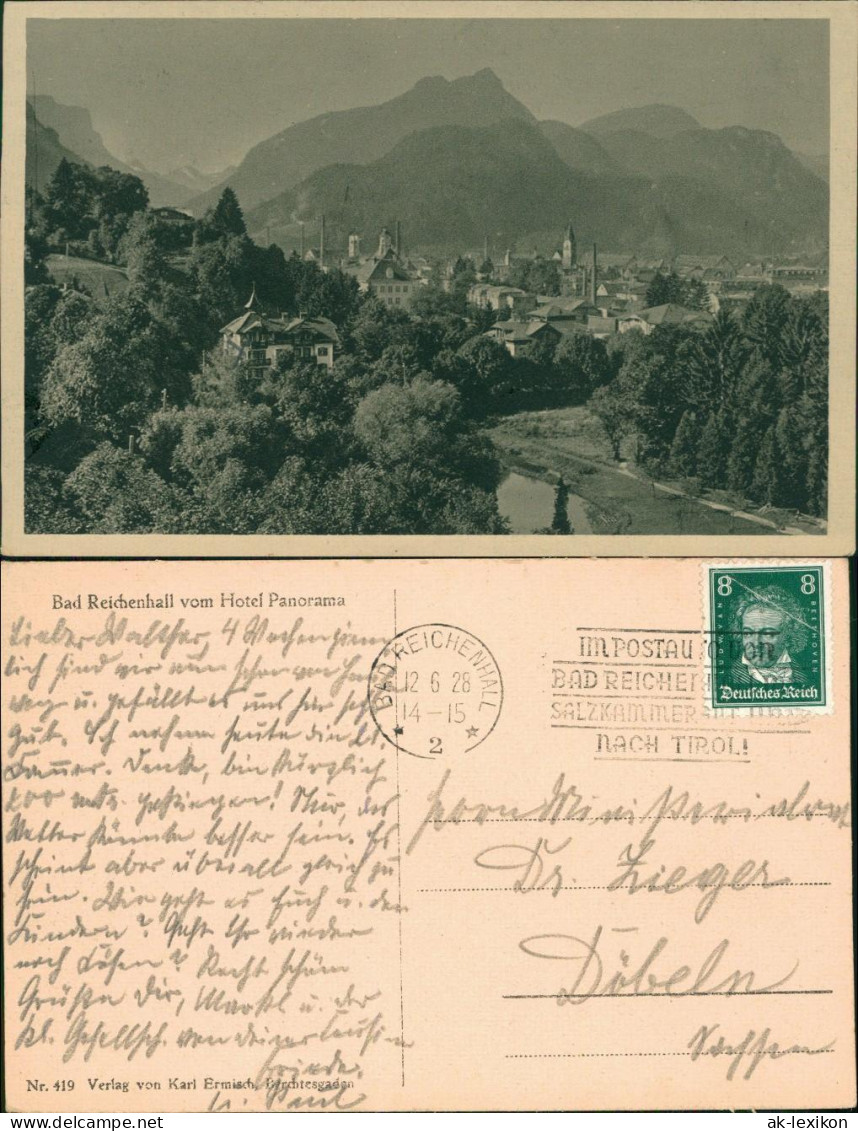 Bad Reichenhall vom Hotel Panorama
Lieber Walther, 4 Wochen ziem
lich sind wir nun schon von
weg u. gefällt es uns hier sehr
gut. Ich nehme heute die
Denk, bin kürzlich
gestiegen! Nur, das
Wetter könnte besser sein. Es
scheint aber überall gleich zu
sein. Wie geht es Euch u. den
Kindern? Geht Ihr wieder
nach Kösen? Recht schöne
Grüße Dir, u. der
kl. Gesellsch. von Deiner
Frieda.
u. Paul
Nr. 419 Verlag von Karl Ermisch, Berchtesgaden
BAD REICHENHALL
12 6 28
14-15
2
IM POSTAUTO VON
BAD REICHENHALL
SALZKAMMERGUT U.
NACH TIROL!
8 8
LUDW. VAN BEETHOVEN
Deutsches Reich
Herrn Ministerialrat
Dr. Zieger
Döbeln
Sachsen
ak-lexikon